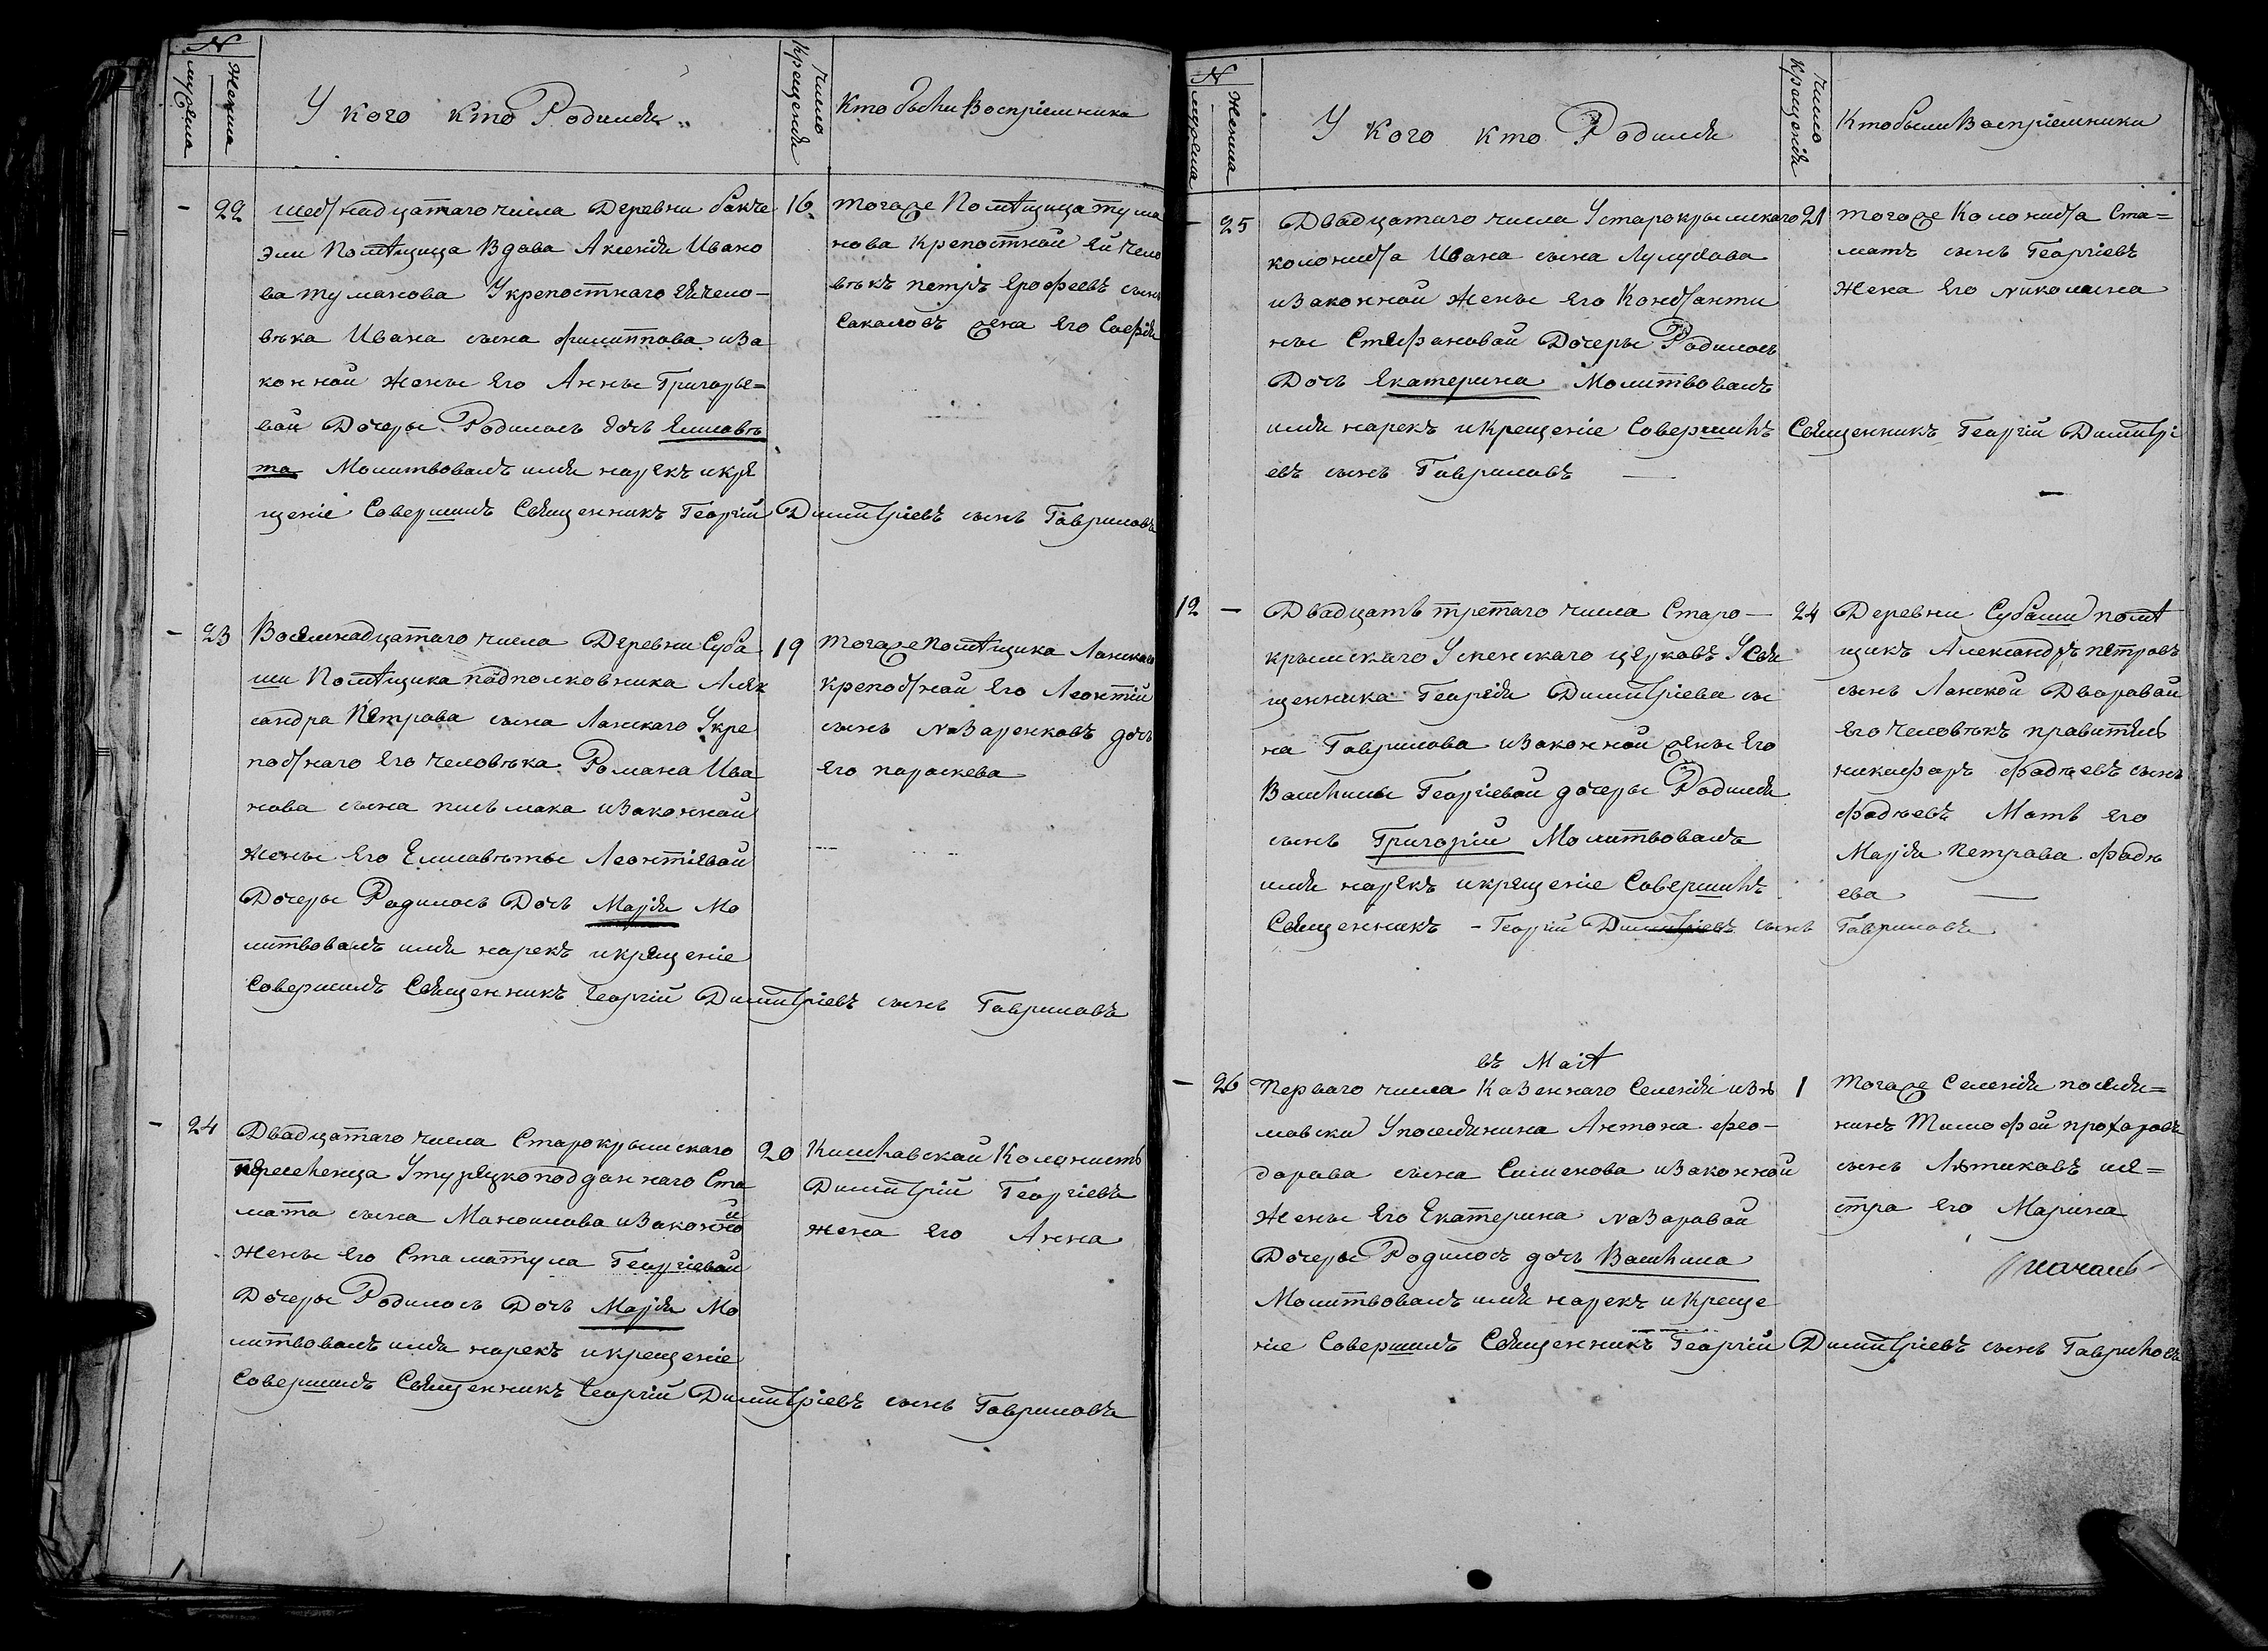 N
мужеска
женска
У кого кто Родился
число крещенія
Кто были Воспріемника
- 22 шестнадцатаго числа Деревни бакче 16
эли помѣщица Вдова Аксенія Ивано
ва туманова Укрепостнаго ея чело-
вѣка Ивана сына филиппова иза
конной жены его Анны Григорье=
вой Дочеры Родилась дочь Елисавѣ
та Молитвовалъ имя нарекъ икре
щеніе Совершилъ Священникъ Георгій Димитріевъ сынъ Гавриловъ
тогоже Помѣщица тума
нова крепостной ей чело
вѣкъ петръ ерофеевъ сынъ
Сакаловъ жена его Софія
- 23 Восемнадцатаго числа Деревни Суба 19
ши Помѣщика падполковника Алек
сандра Петрова сына Ланскаго Укре
постнаго его человѣка Романа Ива
нова сына письмака изаконной
жены его Елисавѣты Леонтіевой
Дочеры Родилась Дочь Марія Мо
литвовалъ имя нарекъ икрещеніе
Совершилъ Священникъ Георгій Димитріевъ сынъ Гавриловъ
тогоже Помѣщика Ланскаго
крепостной его Леонтій
сынъ Назаренковъ дочь
его параскева
- 24 Двадцатаго числа Старокрымскаго 20
переселенца Утурецкоподданнаго Ста
мата сына Маноилова изаконной
жены его Стаматула Георгіевой
Дочеры Родилась Дочь Марія Мо
литвовалъ имя нарекъ икрещеніе
Совершилъ Священникъ Георгій Димитріевъ сынъ Гавриловъ
Кишлавской Колонистъ
Димитрій Георгіевъ
жена его Анна
N
мужеска
женска
У кого кто Родился
число крещенія
Кто были Воспріемники
- 25 Двадцатаго числа Устарокрымскаго 21
колониста Ивана сына Лулудова
изаконной жены его Константи
ны Стефановой Дочеры Родилась
Дочь Екатерина Молитвовалъ
имя нарекъ икрещеніе Совершилъ Священникъ Георгій Димитрі
евъ сынъ Гавриловъ
тогоже Колониста Ста=
матъ сынъ Георгіевъ
жена его Николаина
12 - Двадцать третаго числа Старо- 24
крымскаго Успенскаго церковъ Усвя
щенника Георгія Димитріева сы
на Гаврилова изаконной жены его
Васильы Георгіевой дочеры Родился
сынъ Григорій Молитвовалъ
имя нарекъ икрещеніе Совершилъ
Священникъ - Георгій Димитріевъ сынъ Гавриловъ
Деревни Субаши помѣ
щикъ Александръ петровъ
сынъ Ланской Дворавой
его человѣкъ правитель
никифаръ фадѣевъ сынъ
фадѣевъ Мать его
Марія петрова фадѣ
ева
въ Маіѣ
- 26 Перваго числа Казеннаго Селенія изю 1
мовски Упоселянина Антона фео-
дорова сына Сименова изаконной
жены его Екатерина Назаровай
Дочеры Родилась дочь Василиса
Молитвовалъ имя нарекъ икреще
ніе Совершилъ Священникъ Георгій Димитріевъ сынъ Гавриловъ
тогоже селенія поселя=
нинъ Тимофей прохоровъ
сынъ Лѣтиковъ се=
стра его Марина